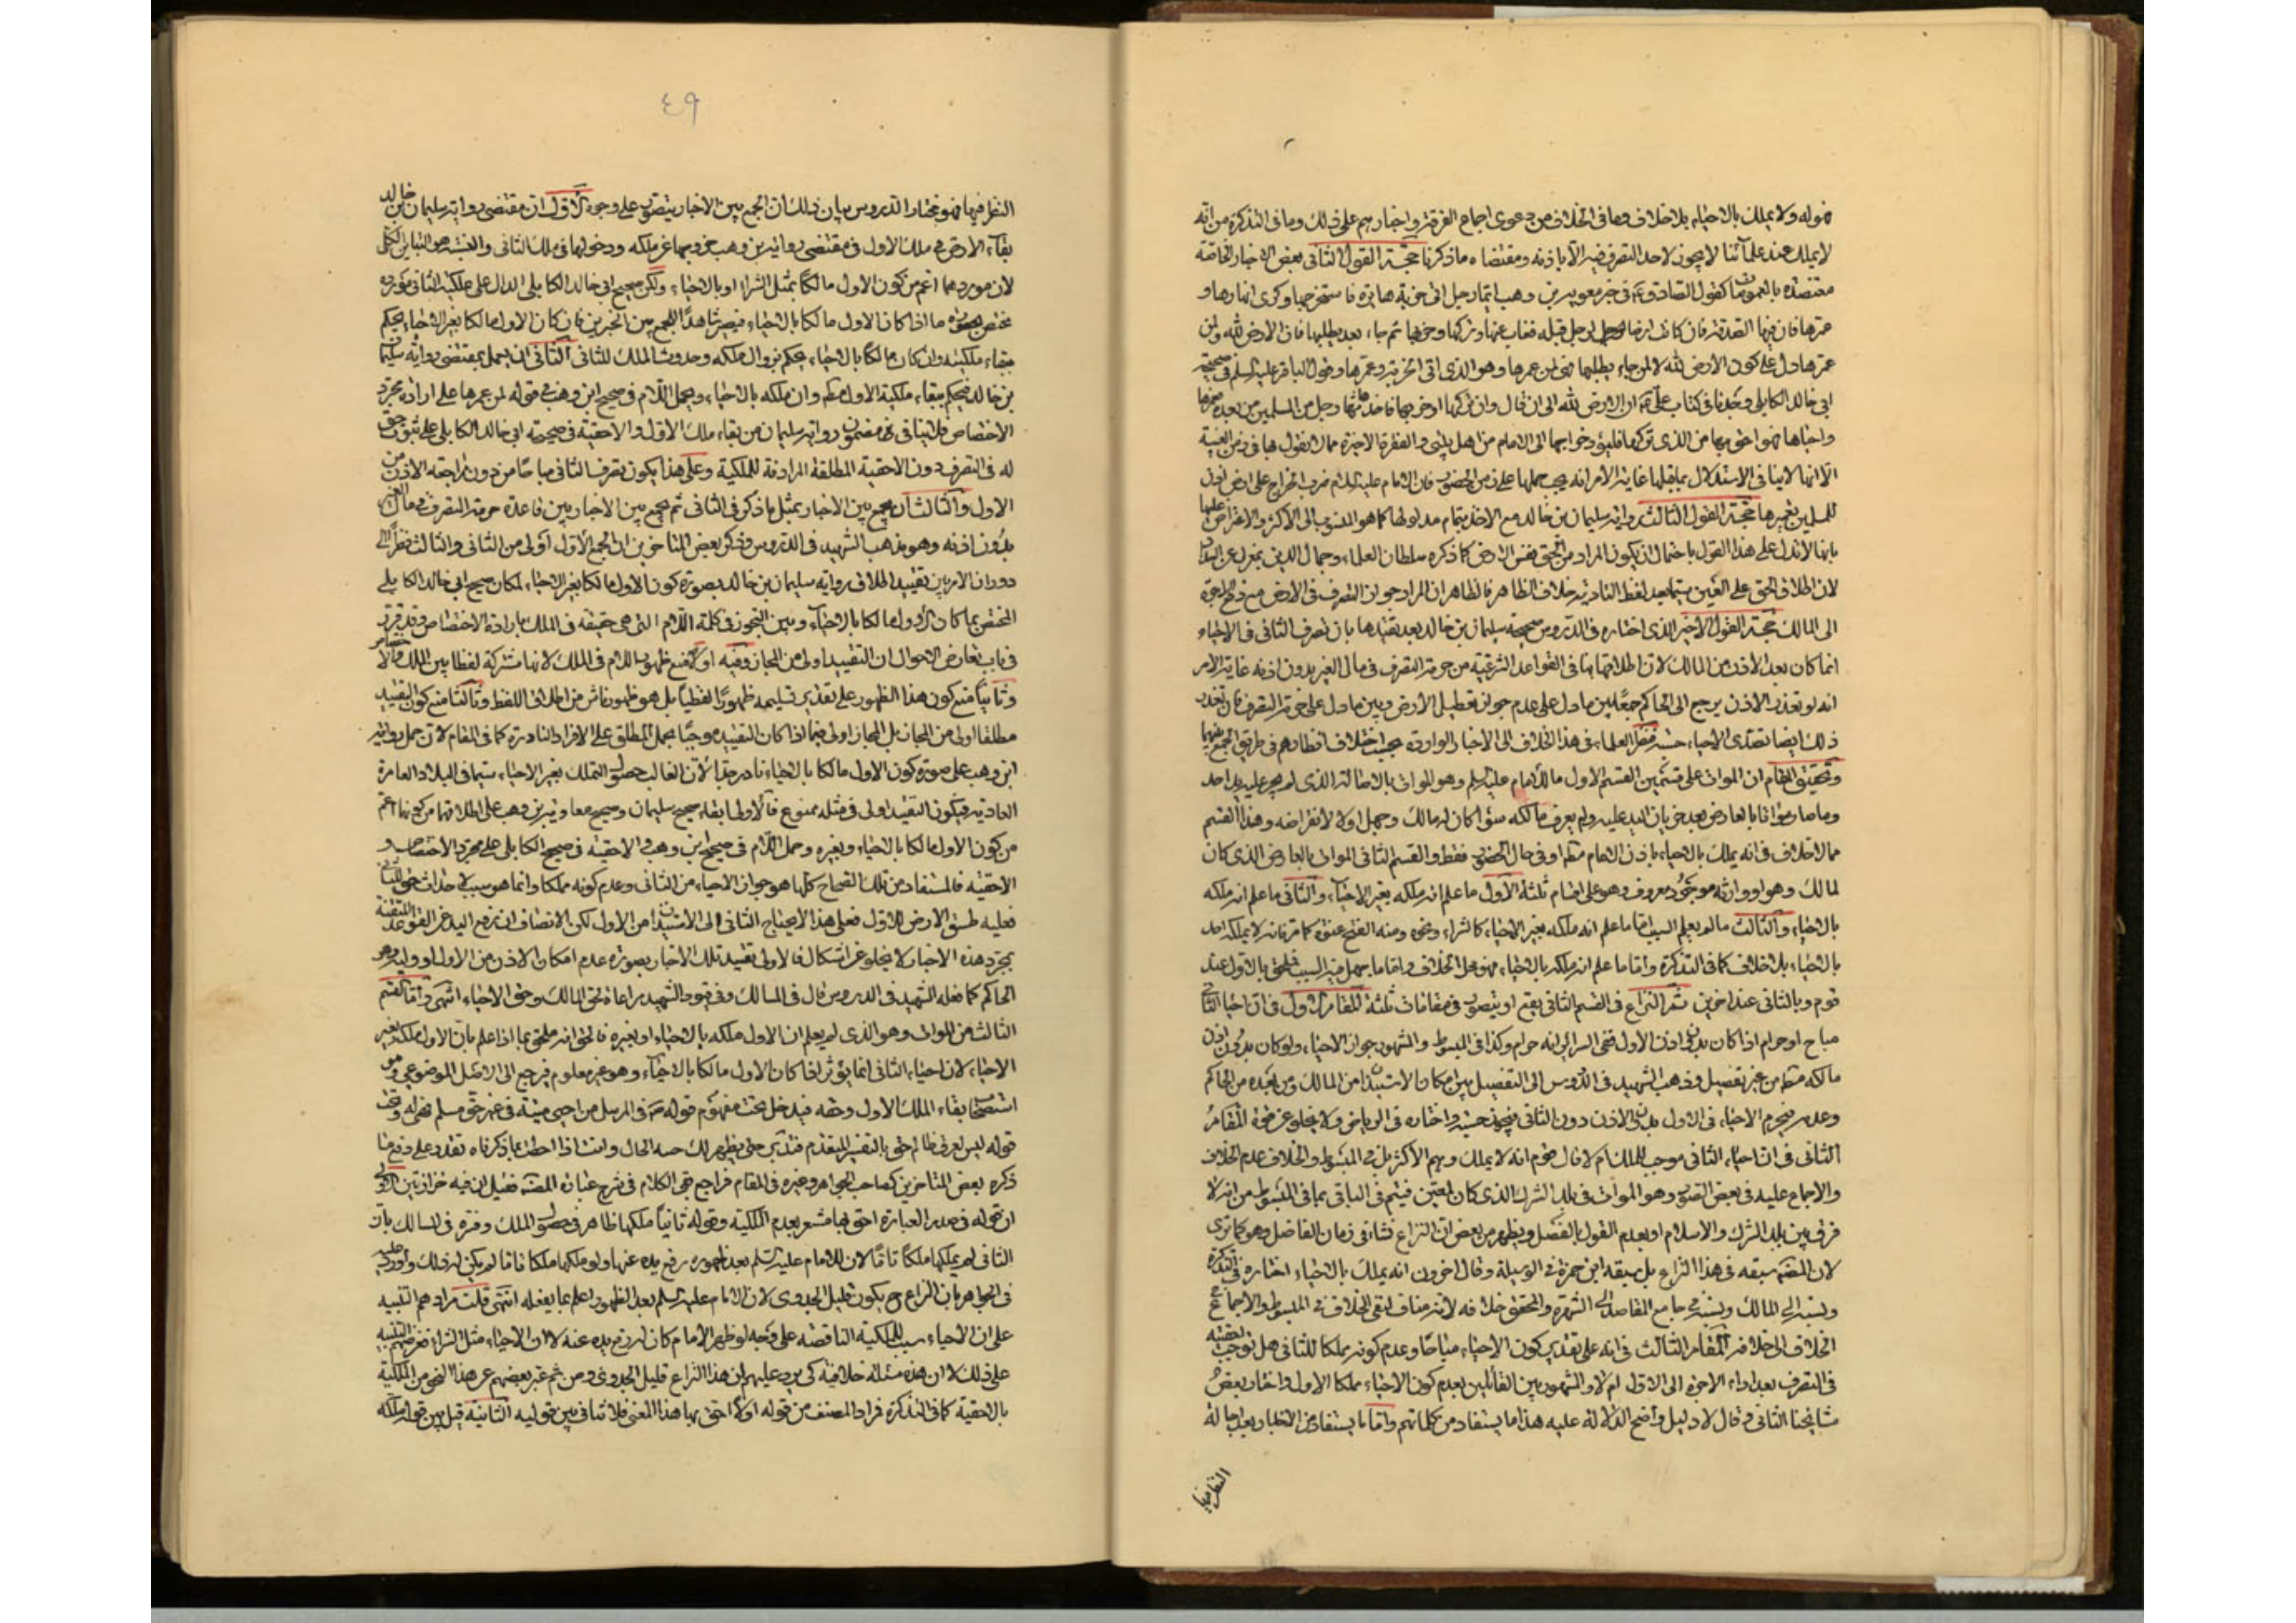 فهو له ولا يملك بالاحياء بلا خلاف وما فى الخلاف من دعوى اجماع الفرقة واخبارهم على ذلك وما فى التذكرة من انّه
لا يملك عند علمائنا لا يجوز لاحد التصرف فيه الّا باذنه ومقتضاه ما ذكرنا حجّة القول الثانى بعض الاخبار الخاصّة
معتضدة بالعمومات كقول الصادق ع فى خبر معوية بن وهب ايّما رجل اتى خربة بائرة فاستخرجها وكرى انهارها و
عمرها فان فيها الصدقة فان كانت ارضا لرجل قبله فغاب عنها وتركها وخربها ثم جاء بعد يطلبها فان الارض لله ولمن
عمرها دل على كون الارض لله لا لمن جاء يطلبها فهى لمن عمرها وهو الذى اتى الخربة وعمرها وقول الباقر عليه السلم فى صحيحة
ابى خالد الكابلى وجدنا فى كتاب على ع ان الارض لله الى ان قال وان تركها او خربها فاخذها رجل من المسلمين من بعده فعمرها
واحياها فهو احق بها من الذى تركها فليؤد خراجها الى الامام من اهل بيتى و الفقرة الاخيرة مما لا نقول بها فى زمن الغيبة
الّا انها لا ينافى الاستدلال بما قبلها غاية الامر انه يجب حملها على زمن الحضور فان الامام عليه السلام ضرب الخراج على ارض
للمسلمين بغيرها حجّة القول الثالث رواية سليمان بن خالد مع الاخذ بتمام مدلولها كما هو المنسوب الى الاكثر والاعتراض عليها
بانها لا تدل على هذا القول باحتمال ان يكون المراد من الحق نفس الارض كما ذكره سلطان العلماء وجمال الدين بمعزل عن السداد
لان اطلاق الحق على العين سيّما بعد لفظ التادية خلاف الظاهر فالظاهر ان المراد جواز التصرف فى الارض مع دفع الاجرة
الى المالك حجّة القول الاخير الذى اختاره فى الدروس صحيحة سليمان بن خالد بعد تقييدها بان تصرف الثانى فى الاحياء
انما كان بعد الاذن من المالك لان اطلاقها ينافى القواعد الشرعية من حرمة التصرف فى مال الغير بدون اذنه غاية الامر
انه لو تعذر الاذن يرجع الى الحاكم جمعًا بين ما دل على عدم جواز تعطيل الارض وبين ما دل على حرمة التصرف فان تعذر
ذلك ايضا تصدّى الاحياء حسبة فنظر العلماء فى هذا الخلاف الى الاخبار الواردة بحسب اختلاف انظارهم فى طريق الجمع بينهما
وتحقيق المقام ان الموات على قسمين القسم الاول ما للامام عليه السلم وهو الموات بالاصالة الذى لم يجر عليه يد احد
وما صار مواتا بالعارض بعد جريان اليد عليه ولم يعرف مالكه سوا كان له مالك وجهل اولا لانقراضه وهذا القسم
مما لا خلاف فى انه يملك بالاحياء باذن الامام مطم او فى حال الحضور فقط والقسم الثانى الموات بالعارض الذى كان
لمالك وهو او وارثه موجود معروف وهو على اقسام ثلثة الاول ما علم انه ملكه بغير الاحياء والثانى ما علم انه ملكه
بالاحياء والثالث ما لم يعلم السبب امّا ما علم انه ملكه بغير الاحياء كالشراء ونحوه ومنه الفتح عنوة كما مر فانه لا يملكه احد
بالاحياء بلا خلاف كما فى التذكرة وامّا ما علم انه ملكه بالاحياء فهو محل الخلاف وامّا ما جهل فيه السبب فيلحق بالاول عند
قوم وبالثانى عند اخرين ثم النزاع فى القسم الثانى يقع او يتصور فى مقامات ثلثة المقام الاول فى ان احيا الثانى
مباح او حرام اذا كان بدون اذن الاول فعن السرائر انه حرام وكذا فى المبسوط والمشهور جواز الاحياء ولو كان بدون اذن
مالكه مطم من غير تفصيل وذهب الشهيد فى الدروس الى التفصيل بين امكان الاستيذان من المالك ومن بعده من الحاكم
وعدمه فيحرم الاحياء فى الاول بدون الاذن دون الثانى فيجوز حسبة واختاره فى الرياض ولا يخلو عن قوة المقام
الثانى فى ان احياء الثانى موجب للملك ام لا قال قوم انه لا يملك وبهم الاكثر بل فى المبسوط والخلاف عدم الخلاف
والاجماع عليه فى بعض الصور وهو الموات فى بلد الشرك الذى كان لمعين فيتم فى الباقى بما فى المبسوط من انه لا
فرق بين بلد الشرك والاسلام او بعدم القول بالفصل ويظهر من بعض ان النزاع نشا فى زمان الفاضل وهو كما ترى
لان المصنف سبقه فى هذا النزاع بل سبقه ابن حمزة فى الوسيلة وقال اخرون انه يملك بالاحياء اختاره فى التذكرة
ونسبه الى المالك ونسبه فى جامع المقاصد الى الشهرة والمحقق خلافه لانه مناف لنفى الخلاف فى المبسوط والاجماع فى
الخلاف الى خلافه المقام الثالث فى انه على تقدير كون الاحياء مباحا وعدم كونه مملكا للثانى هل يوجب احقيته
فى التصرف بعد اداء الاجرة الى الاول ام لا والمشهور بين القائلين بعدم كون الاحياء مملكا الاول واختار بعض
مشايخنا الثانى وقال لا دليل واضح الدلالة عليه هذا ما يستفاد من كلماتهم وامّا ما يستفاد من الاخبار بعد احالة
النظر فيها
٤٩
النظر فيها فهو مختار الدروس بيان ذلك ان الجمع بين الاخبار يتصور على وجوه الاول ان مقتضى رواية سليمان بن خالد
بقاء الارض فى ملك الاول ومقتضى رواية بن وهب خروجها عن ملكه ودخولها فى ملك الثانى والنسبة هو التباين الكلى
لان موردهما اعم من كون الاول مالكا بمثل الشراء او بالاحياء ولكن صحيح ابى خالد الكابلى الدال على ملكية الثانى مورده
مختص بصورة ما اذا كان الاول مالكا بالاحياء فيصير شاهدا للجمع بين الخبرين فان كان الاول مالكا بغير الاحياء يحكم
ببقاء ملكيته وان كان مالكا بالاحياء يحكم بزوال ملكه وحدوث الملك للثانى الثانى ان يعمل بمقتضى رواية سليمان
بن خالد فيحكم ببقاء ملكية الاول مطم وان ملكه بالاحياء ويحمل اللام فى صحيح ابن وهب فى قوله لمن عمرها على ارادة مجرد
الاختصاص فلا ينافى مضمون رواية سليمان من بقاء ملك الاول والاحقية فى صحيحة ابى خالد الكابلى على ثبوت حق
له فى التصرف دون الاحقية المطلقة المرادفة للملكية وعلى هذا يكون تصرف الثانى مباحا من دون مراجعة الاذن من
الاول والثالث ان يجمع بين الاخبار بمثل ما ذكر فى الثانى ثم يجمع بين الاخبار وبين قاعدة حرمة التصرف فى مال الغير
بدون اذنه وهو مذهب الشهيد فى الدروس وذكر بعض المتاخرين ان الجمع الاول اولى من الثانى والثالث نظرا الى
دوران الامر بين تقييد اطلاق رواية سليمان بن خالد بصورة كون الاول مالكا بغير الاحياء لمكان صحيح ابى خالد الكابلى
المختص بما كان الاول مالكا بالاحياء وبين التجوز فى كلمة اللام التى هى حقيقة فى الملك بارادة الاختصاص وقد قرر
فى باب تعارض الاحوال ان التقييد اولى من المجاز وفيه اولا منع ظهور اللام فى الملك لانها مشتركة لفظا بين الملك والاختصاص
وثانيا منع كون هذا الظهور على تقدير تسليمه ظهورا لفظيا بل هو ظهور ناش من اطلاق اللفظ وثالثا منع كون التقييد
مطلقا اولى من المجاز بل المجاز اولى فيما اذا كان التقييد موجبا لحمل المطلق على الافراد النادرة كما فى المقام لان حمل رواية
ابن وهب على صورة كون الاول مالكا بالاحياء نادر جدا لان الغالب حصول التملك بغير الاحياء سيّما فى البلاد العامرة
العادية فيكون التقييد اولى فى مثله ممنوع فالاولى ابقاء صحيح سليمان وصحيح معاوية بن وهب على اطلاقهما من كونهما اعم
من كون الاول مالكا بالاحياء وبغيره وحمل اللام فى صحيح ابن وهب والاحقية فى صحيح الكابلى على مجرد الاختصاص و
الاحقية فالمستفاد من تلك الصحاح كلها هو جواز الاحياء من الثانى وعدم كونه مملكا وانما هو سبب لاحداث حق للثانى
فعليه طسق الارض للاول فعلى هذا لا يحتاج الثانى الى الاستيذان من الاول لكن الانصاف ان رفع اليد عن القواعد المتقنة
بمجرد هذه الاخبار لا يخلو عن اشكال فالاولى تقييد تلك الاخبار بصورة عدم امكان الاذن من الاول او وليه وهو
الحاكم كما فعله الشهيد فى الدروس قال فى المسالك وفى قيود الشهيد مراعاة لحق المالك وحق الاحياء انتهى وامّا القسم
الثالث من الموات وهو الذى لم يعلم ان الاول ملكه بالاحياء او بغيره فالحق انه ملحق بما اذا علم بان الاول ملكه بغير
الاحياء لان احياء الثانى انما يؤثر اذا كان الاول مالكا بالاحياء وهو غير معلوم فيرجع الى الاصل الموضوعى وهو
استصحاب بقاء الملك الاول وحقه فيدخل تحت مفهوم قوله ص فى المرسل من احيى ميتة فى غير حق مسلم فهى له وتحت
قوله ليس لعرق ظالم حق بالتفسير المتقدم فتدبر حتى يظهر لك حسم الحال وانت اذا احطت بما ذكرناه تقدر على دفع ما
ذكره بعض المتاخرين كصاحب الجواهر وغيره فى المقام فراجع بقى الكلام فى شرح عبارة المصنف فقيل ان فيه حزازتين الاولى
ان قوله فى صدر العبارة احق بها مشعر بعدم الملكية وقوله ثانيا ملكها ظاهر فى حصول الملك وفسره فى المسالك بان
الثانى لم يملكها ملكا تامّا لان للامام عليه السلم بعد ظهوره رفع يده عنها ولو ملكها ملكا تامّا لم يكن له ذلك واورد عليه
فى الجواهر بان النزاع ح يكون قليل الجدوى لان الامام عليه السلم بعد الظهور اعلم بما يفعله انتهى قلت مرادهم التنبيه
على ان الاحياء سبب للملكية الناقصة على وجه لو ظهر الامام كان له رفع يده عنه لا ان الاحياء مثل الشراء فغرضهم التنبيه
على ذلك لا ان هذه مسئلة خلافية كى يرد عليهم ان هذا النزاع قليل الجدوى ومن ثم عبر بعضهم عن هذا النحو من الملكية
بالاحقية كما فى التذكرة فمراد المصنف من قوله اولا احق بها هذا المعنى فلا تنافى بين قوليه الثانية قيل بين قوله ملكه